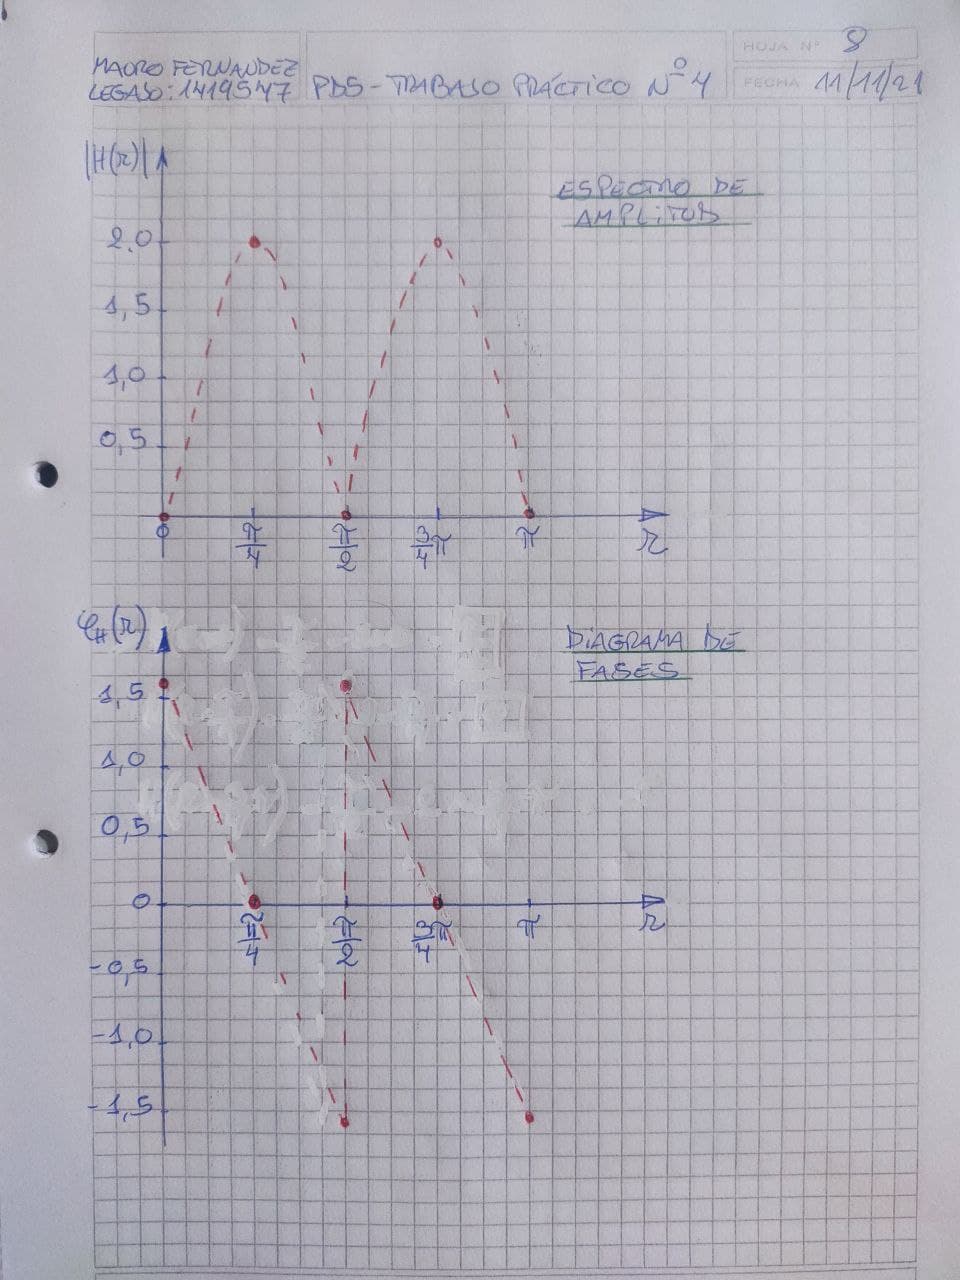 HOJA Nº 8
MAURO FERNANDEZ
LEGAJO: 1419547
PDS - TRABAJO PRÁCTICO Nº 4
FECHA 11/11/21
|H(Ω)|
ESPECTRO DE
AMPLITUD
2,0
1,5
1,0
0,5
0 π/4 π/2 3/4 π π Ω
φH(Ω)
DIAGRAMA DE
FASES
1,5
1,0
0,5
0
π/4 π/2 3/4 π π Ω
-0,5
-1,0
-1,5